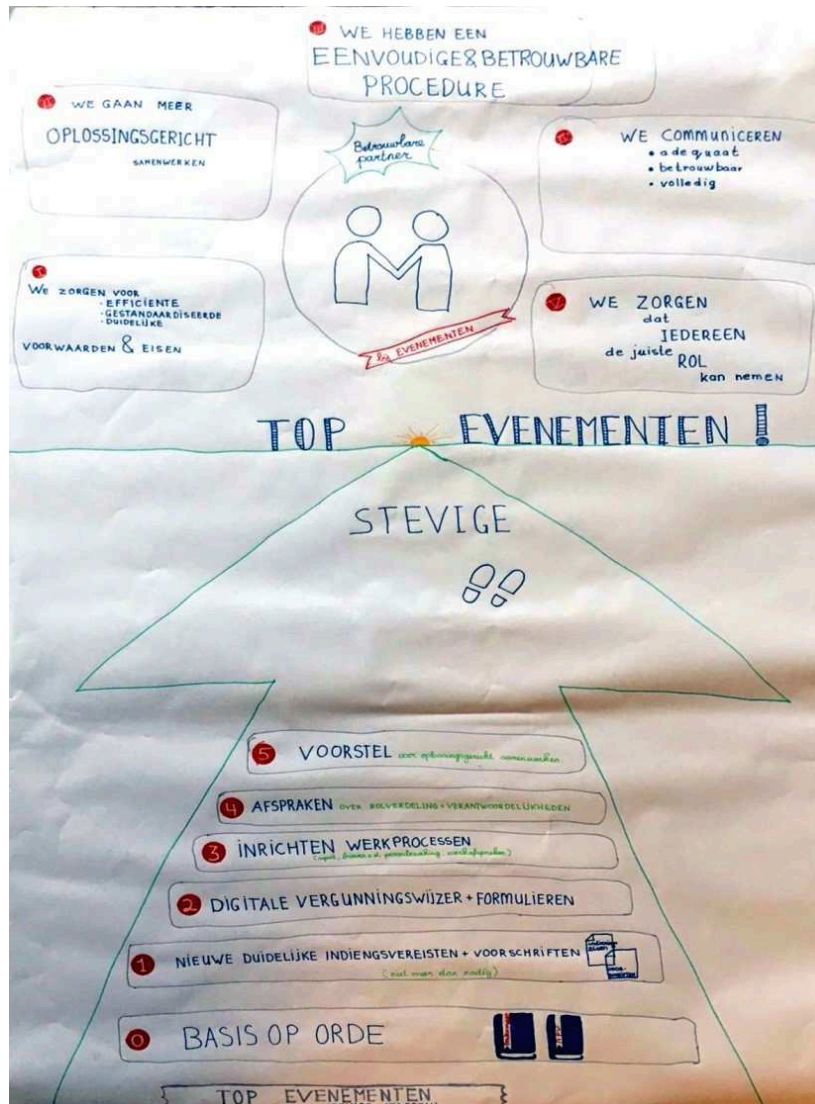 III WE HEBBEN EEN
EENVOUDIGE & BETROUWBARE
PROCEDURE
II WE GAAN MEER
OPLOSSINGSGERICHT
SAMENWERKEN
Betrouwbare
partner
WE COMMUNICEREN
• adequaat
• betrouwbaar
• volledig
I
WE ZORGEN VOOR
· EFFICIENTE
· GESTANDAARDISEERDE
· DUIDELIJKE
VOORWAARDEN & EISEN
bij EVENEMENTEN
V WE ZORGEN
dat
IEDEREEN
de juiste
ROL
kan nemen
TOP EVENEMENTEN!
STEVIGE
5 VOORSTEL voor oplossingsgericht samenwerken
4 AFSPRAKEN OVER ROLVERDELING + VERANTWOORDELIJKHEDEN
3 INRICHTEN WERKPROCESSEN
2 DIGITALE VERGUNNINGSWIJZER + FORMULIEREN
1 NIEUWE DUIDELIJKE INDIENGSVEREISTEN + VOORSCHRIFTEN
(niet meer dan nodig)
0 BASIS OP ORDE
TOP EVENEMENTEN